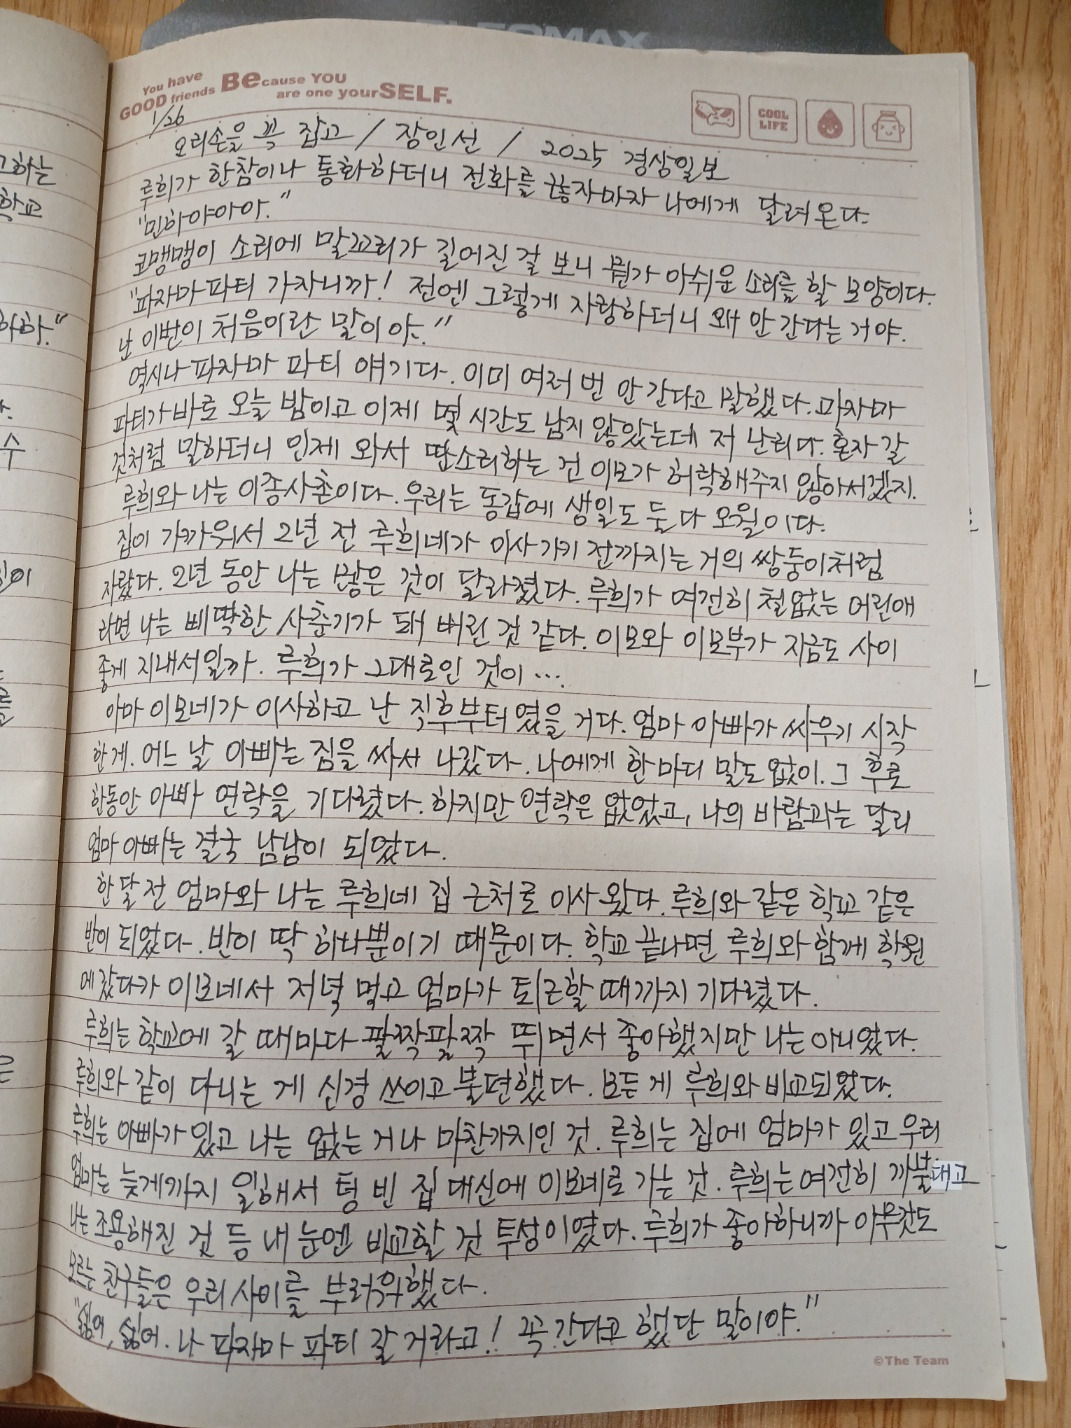 PLEOMAX
You have GOOD friends BEcause YOU are one yourSELF.
COOL LIFE
1/26
오리손을 꼭 잡고 / 장인선 / 2025 경상일보
루희가 한참이나 통화하더니 전화를 놓자마자 나에게 달려온다.
"민하야아아."
코맹맹이 소리에 말꼬리가 길어진 걸 보니 뭔가 아쉬운 소리를 할 모양이다.
"파자마파티 가자니까! 전엔 그렇게 자랑하더니 왜 안 간다는 거야.
난 이번이 처음이란 말이야."
역시나 파자마 파티 얘기다. 이미 여러 번 안 간다고 말했다. 파자마
파티가 바로 오늘 밤이고 이제 몇 시간도 남지 않았는데 저 난리다. 혼자 갈
것처럼 말하더니 인제 와서 딴소리하는 건 이모가 허락해주지 않아서겠지.
루희와 나는 이종사촌이다. 우리는 동갑에 생일도 둘 다 오월이다.
집이 가까워서 2년 전 루희네가 이사가기 전까지는 거의 쌍둥이처럼
자랐다. 2년 동안 나는 많은 것이 달라졌다. 루희가 여전히 철없는 어린애
라면 나는 삐딱한 사춘기가 돼 버린 것 같다. 이모와 이모부가 지금도 사이
좋게 지내서일까. 루희가 그대로인 것이...
아마 이모네가 이사하고 난 직후부터였을 거다. 엄마 아빠가 싸우기 시작
한 게. 어느 날 아빠는 짐을 싸서 나갔다. 나에게 한마디 말도 없이. 그 후로
한동안 아빠 연락을 기다렸다. 하지만 연락은 없었고, 나의 바람과는 달리
엄마 아빠는 결국 남남이 되었다.
한 달 전 엄마와 나는 루희네 집 근처로 이사 왔다. 루희와 같은 학교 같은
반이 되었다. 반이 딱 하나뿐이기 때문이다. 학교 끝나면 루희와 함께 학원
에 갔다가 이모네서 저녁 먹고 엄마가 퇴근할 때까지 기다렸다.
루희는 학교에 갈 때마다 팔짝팔짝 뛰면서 좋아했지만 나는 아니었다.
루희와 같이 다니는 게 신경 쓰이고 불편했다. 모든 게 루희와 비교되었다.
루희는 아빠가 있고 나는 없는 거나 마찬가지인 것. 루희는 집에 엄마가 있고 우리
엄마는 늦게까지 일해서 텅 빈 집 대신에 이모네로 가는 것. 루희는 여전히 까불대고
나는 조용해진 것 등 내 눈엔 비교할 것 투성이였다. 루희가 좋아하니까 아무것도
모르는 친구들은 우리 사이를 부러워했다.
"싫어, 싫어. 나 파자마 파티 갈 거라고! 꼭 간다고 했단 말이야."
©The Team